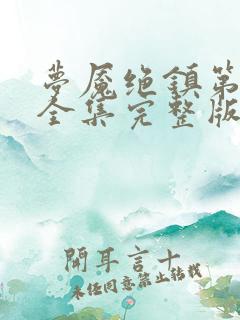 梦魇绝镇第
全集完整版
開耳言十
未经同意禁止转载